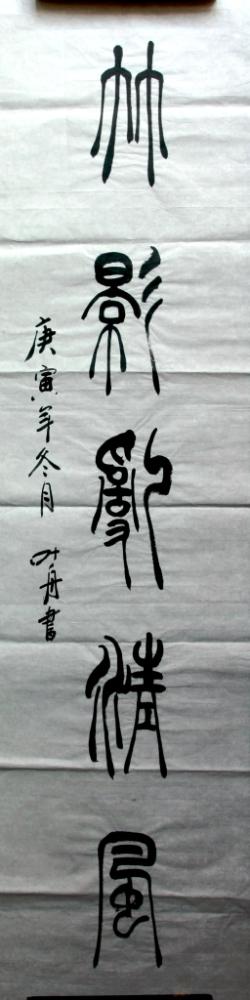 竹影亂清風
庚寅年冬月 叶舟書